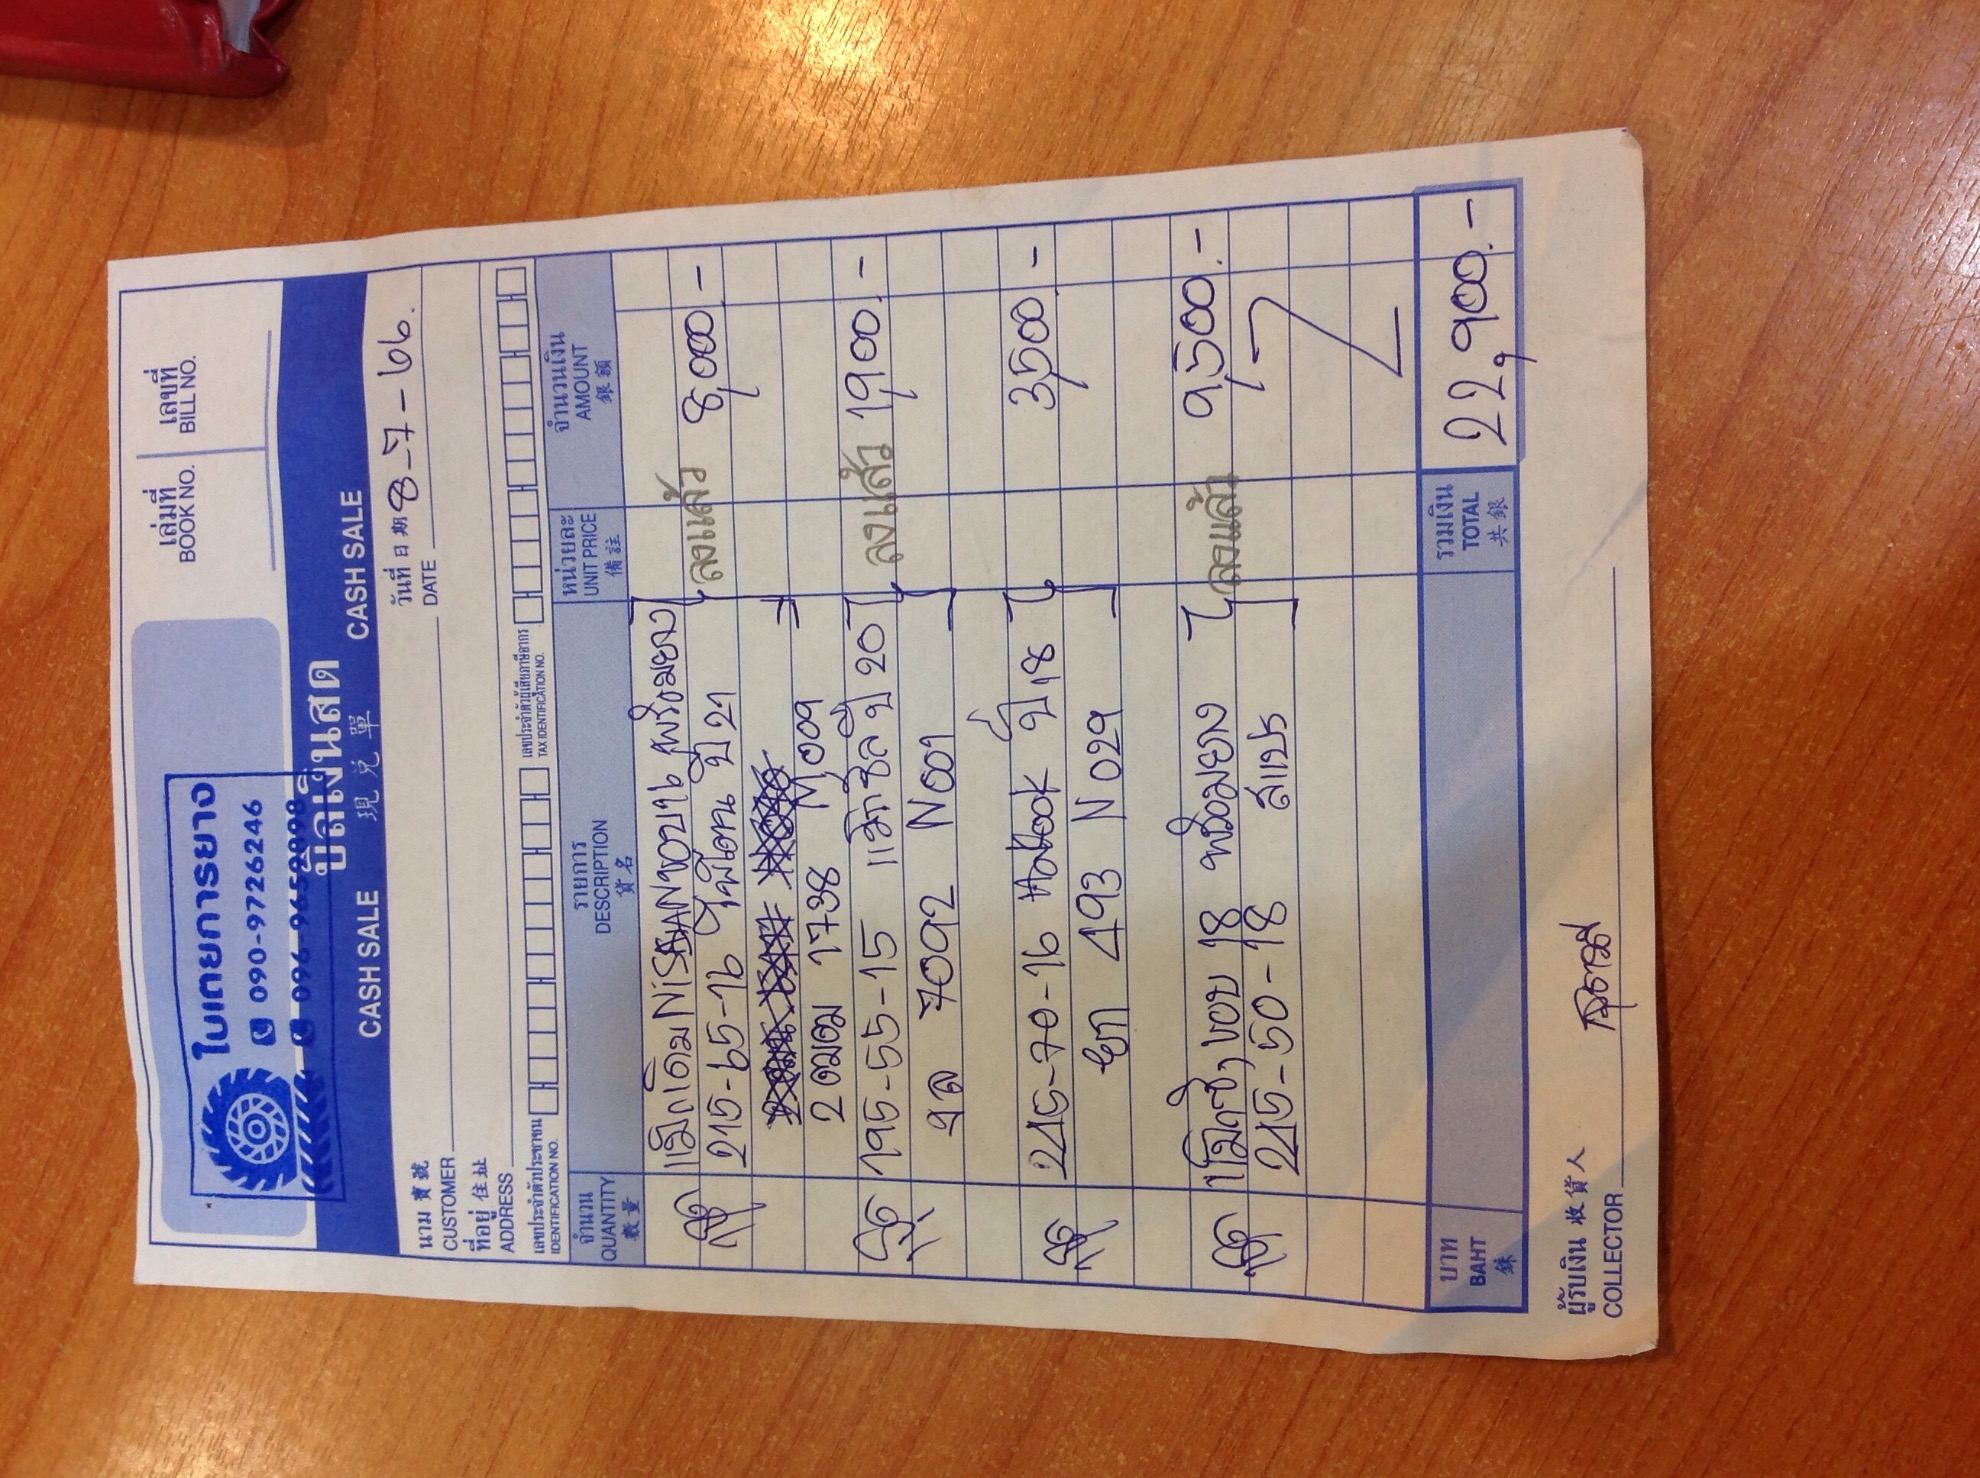 ใบเตยการยาง
090-9726246
096-9652898
เล่มที่ เลขที่
BOOK NO. BILL NO.
บิลเงินสด
CASH SALE 現兑單 CASH SALE
วันที่ 日期 8-7-66.
DATE
นาม 寶號
CUSTOMER
ที่อยู่ 住址
ADDRESS
เลขประจำตัวประชาชน เลขประจำตัวผู้เสียภาษีอากร
IDENTIFICATION NO. TAX IDENTIFICATION NO.
จำนวน รายการ หน่วยละ จำนวนเงิน
QUANTITY DESCRIPTION UNIT PRICE AMOUNT
數量 貨名 備註 銀額
แม็กเดิม NISSAN ขอบ 16 พร้อมยาง
215-65-16 ปี 21 ลงแล้ว 8,000.-
2 ฒฒ 1738 M009
195-55-15 แม็กซิส ปี 20 ลงแล้ว 1,900.-
7092 N001
245-70-16 Hankook ปี 18 3,500.-
493 N029
แม็กซิ่ง ขอบ 18 พร้อมยาง ลงแล้ว 9,500.-
245-50-18
บาท รวมเงิน
BAHT TOTAL 22,900.-
銖 共銀
ผู้รับเงิน 收貨人
COLLECTOR